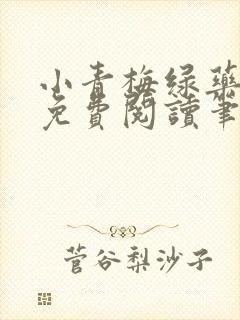 小青梅绿药
免費閱讀筆
菅谷梨沙子